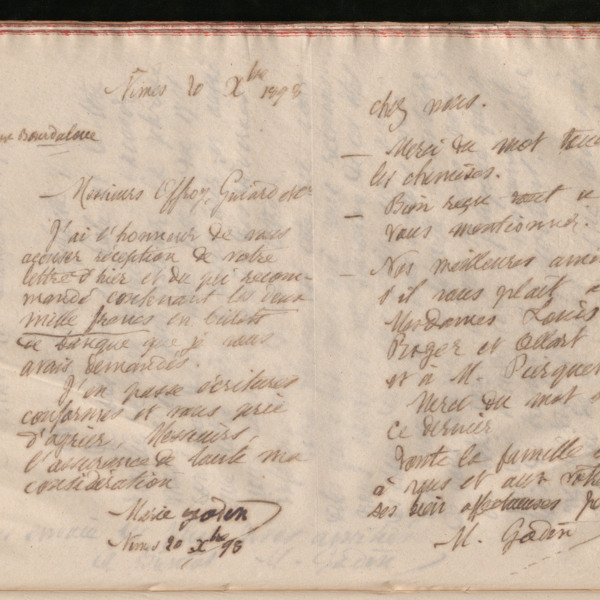 Nîmes 20 Xbre 1898
rue Bourdaloue
Messieurs Offroy, Guiard et Cie
J'ai l'honneur de vous
accuser réception de votre
lettre d'hier et du pli recom-
mandé contenant les deux
mille francs en billets
de banque que je vous
avais demandés.
J'en passe écritures
conformes et vous prie
d'agréer, Messieurs,
l'assurance de toute ma
considération
Marie Godin
Nîmes 20 Xbre 98
chez vous.
— Merci du mot
les chemises.
— Bien reçu tout
vous mentionnez.
— Nos meilleures
s'il vous plaît
Mesdames Louis
Roger et Allart
et à M. Purquet
Merci du mot
ce dernier
Toute la famille
à vous et aux
ses bien affectueuses
M. Godin